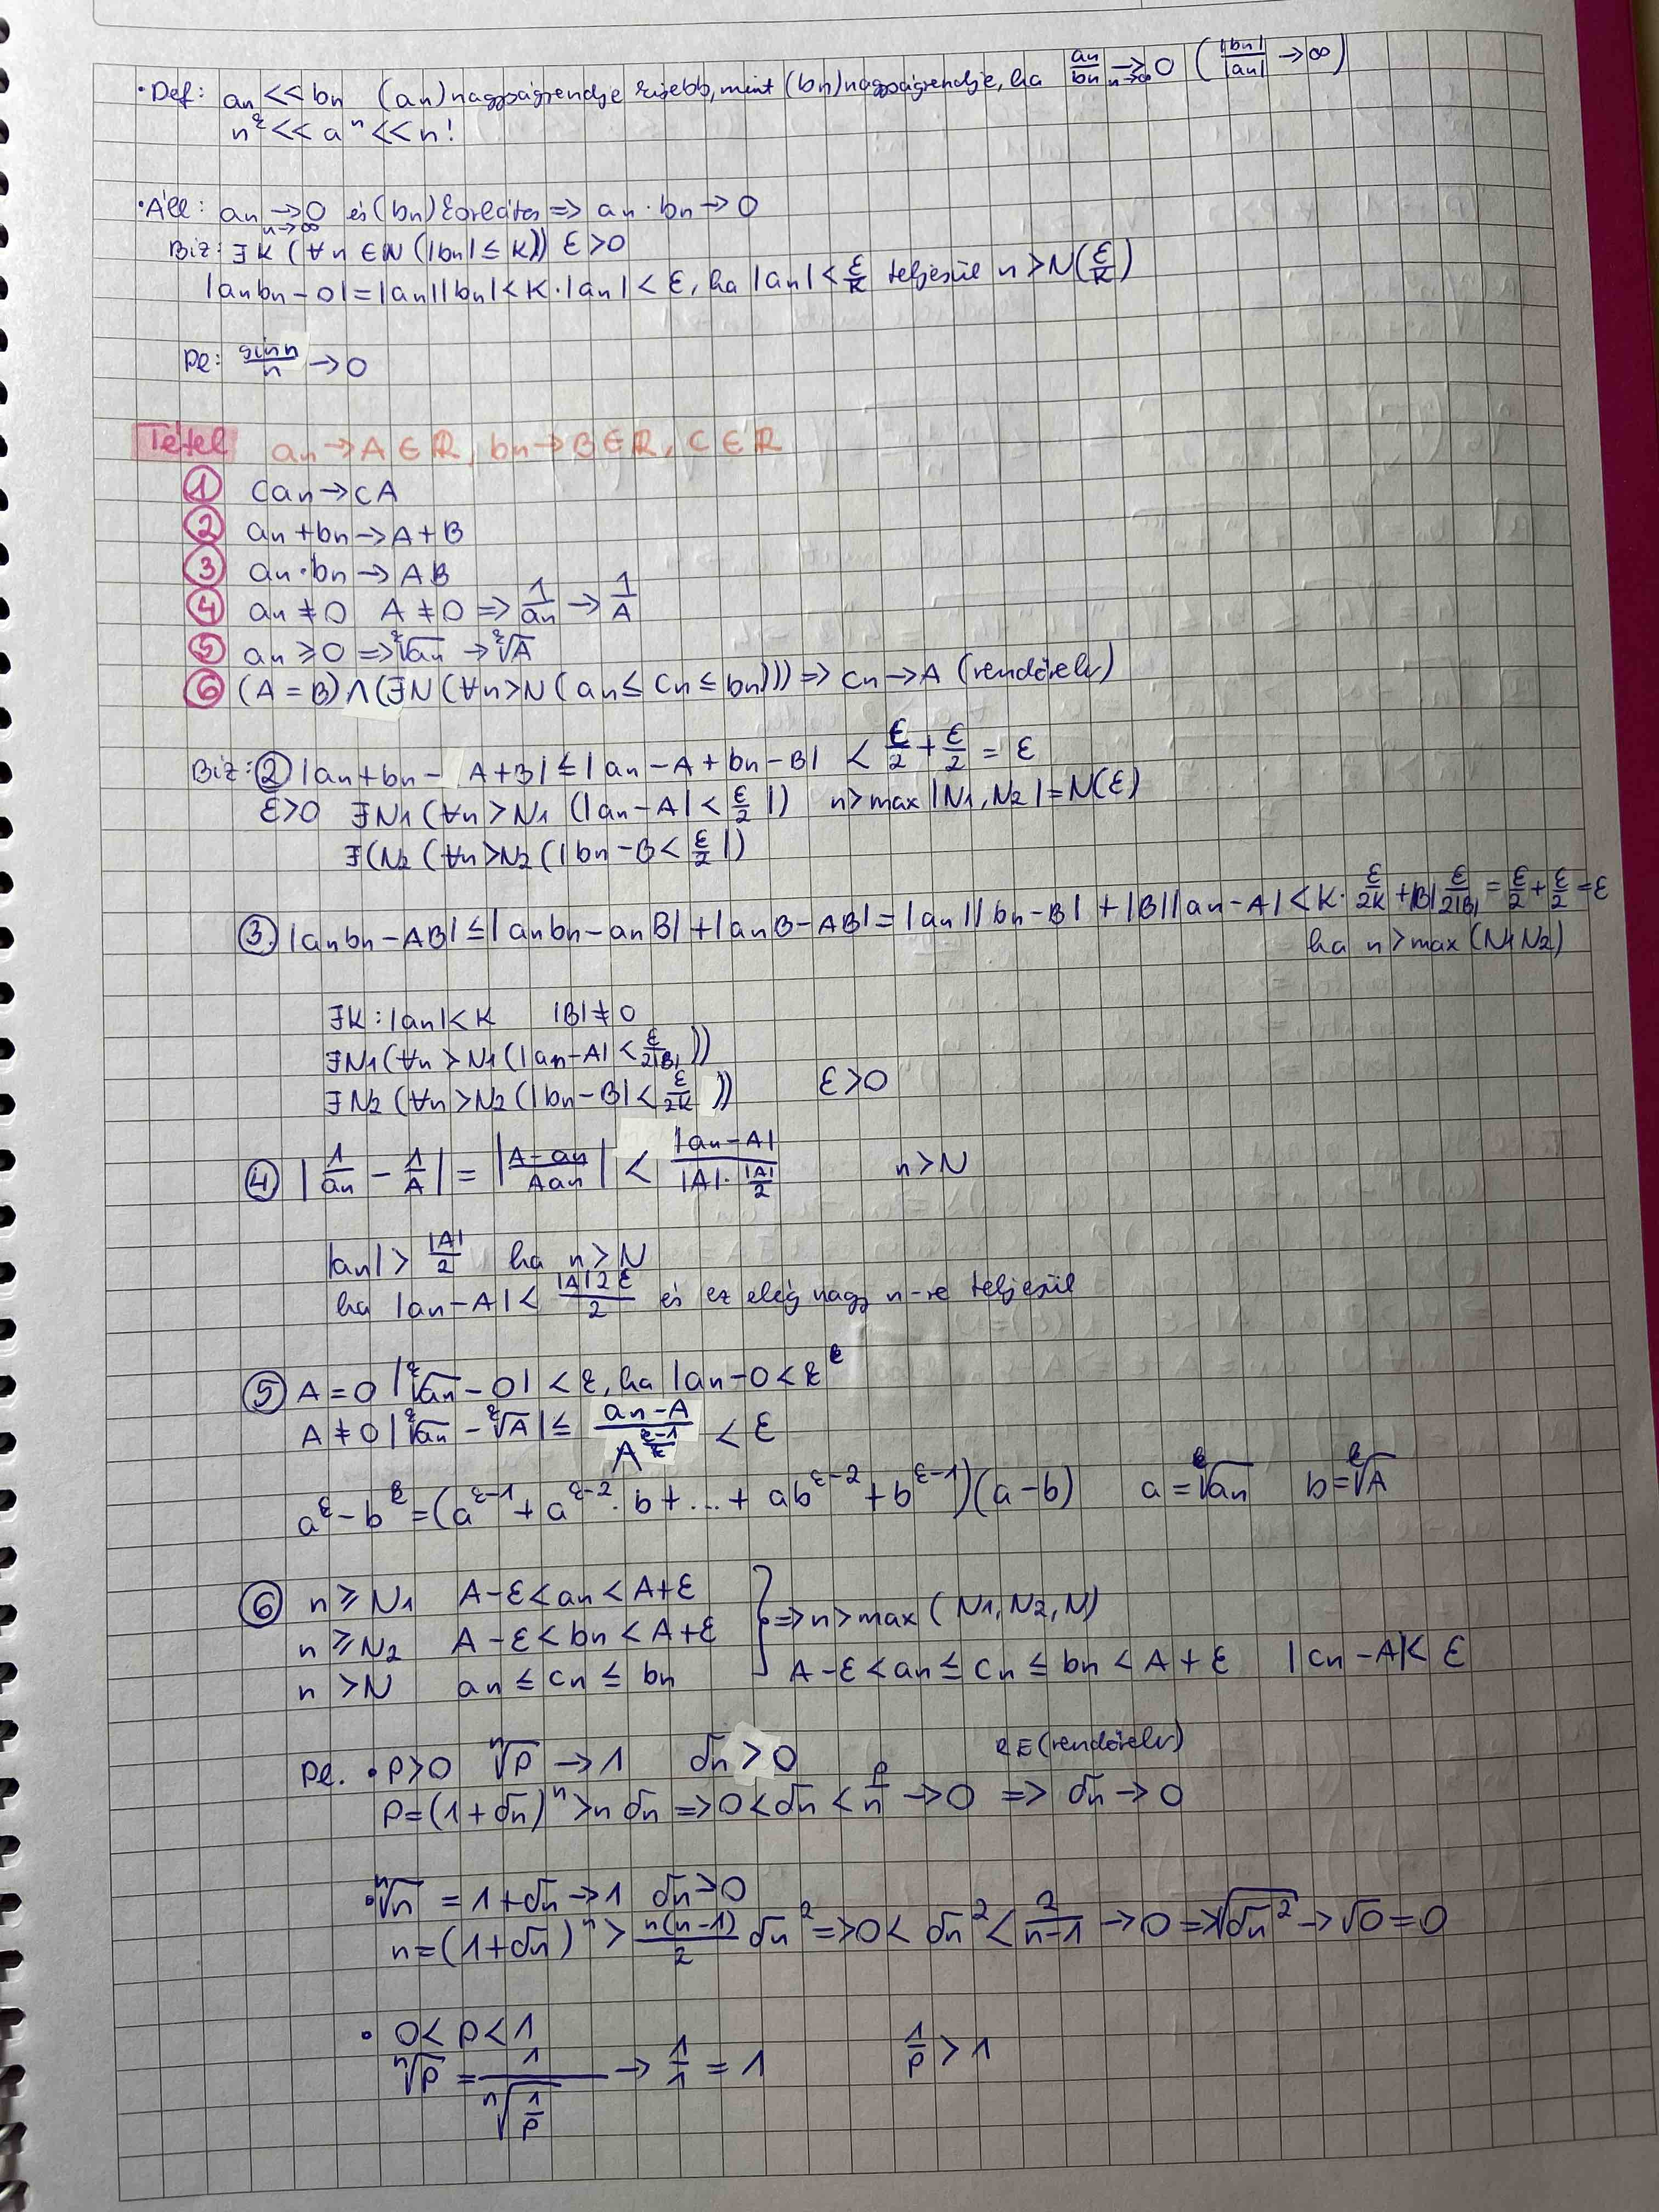 • Def: an << bn (an) nagyságrendje kisebb, mint (bn) nagyságrendje, ha an/bn →n→∞ 0 (|bn|/|an| → ∞)
n^k << a^n << n!
• Áll: an →n→∞ 0 és (bn) korlátos => an · bn → 0
Biz: ∃K (∀n ∈ N (|bn| ≤ K)) ε > 0
|anbn - 0| = |an||bn| < K·|an| < ε, ha |an| < ε/K teljesül n > N(ε/K)
Pl: sin n/n → 0
Tétel an → A ∈ R, bn → B ∈ R, C ∈ R
① can → cA
② an + bn → A + B
③ an · bn → AB
④ an ≠ 0 A ≠ 0 => 1/an → 1/A
⑤ an ≥ 0 => ᵏ√an → ᵏ√A
⑥ (A = B) ∧ (∃N (∀n > N (an ≤ cn ≤ bn))) => cn → A (rendőrelv)
Biz: ② |an + bn - A + B| ≤ |an - A + bn - B| < ε/2 + ε/2 = ε
ε > 0 ∃N1 (∀n > N1 (|an - A| < ε/2|) n > max |N1, N2| = N(ε)
∃(N2 (∀n > N2 (|bn - B < ε/2|)
③ |anbn - AB| ≤ |anbn - anB| + |anB - AB| = |an||bn - B| + |B||an - A| < K · ε/2K + |B| ε/2|B| = ε/2 + ε/2 = ε
ha n > max (N1 N2)
∃K : |an| < K |B| ≠ 0
∃N1 (∀n > N1 (|an - A| < ε/2|B|))
∃N2 (∀n > N2 (|bn - B| < ε/2K)) ε > 0
④ |1/an - 1/A| = |A - an/Aan| < |an - A|/|A|·|A|/2 n > N
|an| > |A|/2 ha n > N
ha |an - A| < |A|2ε/2 és ez elég nagy n-re teljesül
⑤ A = 0 |ᵏ√an - 0| < ε, ha |an - 0 < ε^k
A ≠ 0 |ᵏ√an - ᵏ√A| ≤ an - A/A^(k-1/k) < ε
a^k - b^k = (a^(k-1) + a^(k-2) · b + ... + ab^(k-2) + b^(k-1))(a - b) a = ᵏ√an b = ᵏ√A
⑥ n ≥ N1 A - ε < an < A + ε
n ≥ N2 A - ε < bn < A + ε } => n > max (N1, N2, N)
n > N an ≤ cn ≤ bn A - ε < an ≤ cn ≤ bn < A + ε |cn - A| < ε
Pl. • p > 0 ⁿ√p → 1 δn > 0 RE (rendőrelv)
p = (1 + δn)^n > n δn => 0 < δn < p/n → 0 => δn → 0
• ⁿ√n = 1 + δn → 1 δn > 0
n = (1 + δn)^n > n(n-1)/2 δn² => 0 < δn² < 2/n-1 → 0 => √δn² → √0 = 0
• 0 < p < 1
ⁿ√p = 1/ⁿ√(1/p) → 1/1 = 1 1/p > 1